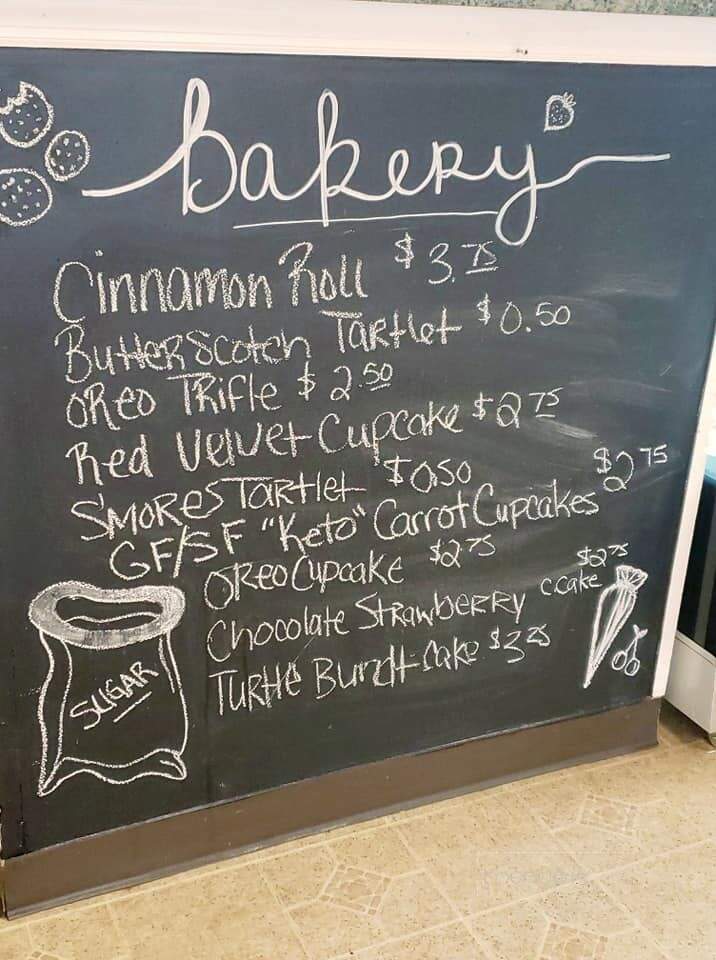 bakery
Cinnamon Roll $3.75
ButterScotch Tartlet $0.50
OReo TRifle $2.50
Red Velvet Cupcake $2.75
SMOReS TaRtlet $0.50
GF/SF "Keto" Carrot Cupcakes $2.75
OReo Cupcake $2.75
Chocolate StRawbeRRy c.cake $2.75
TURtle Bundt-cake $3.25
SUGAR